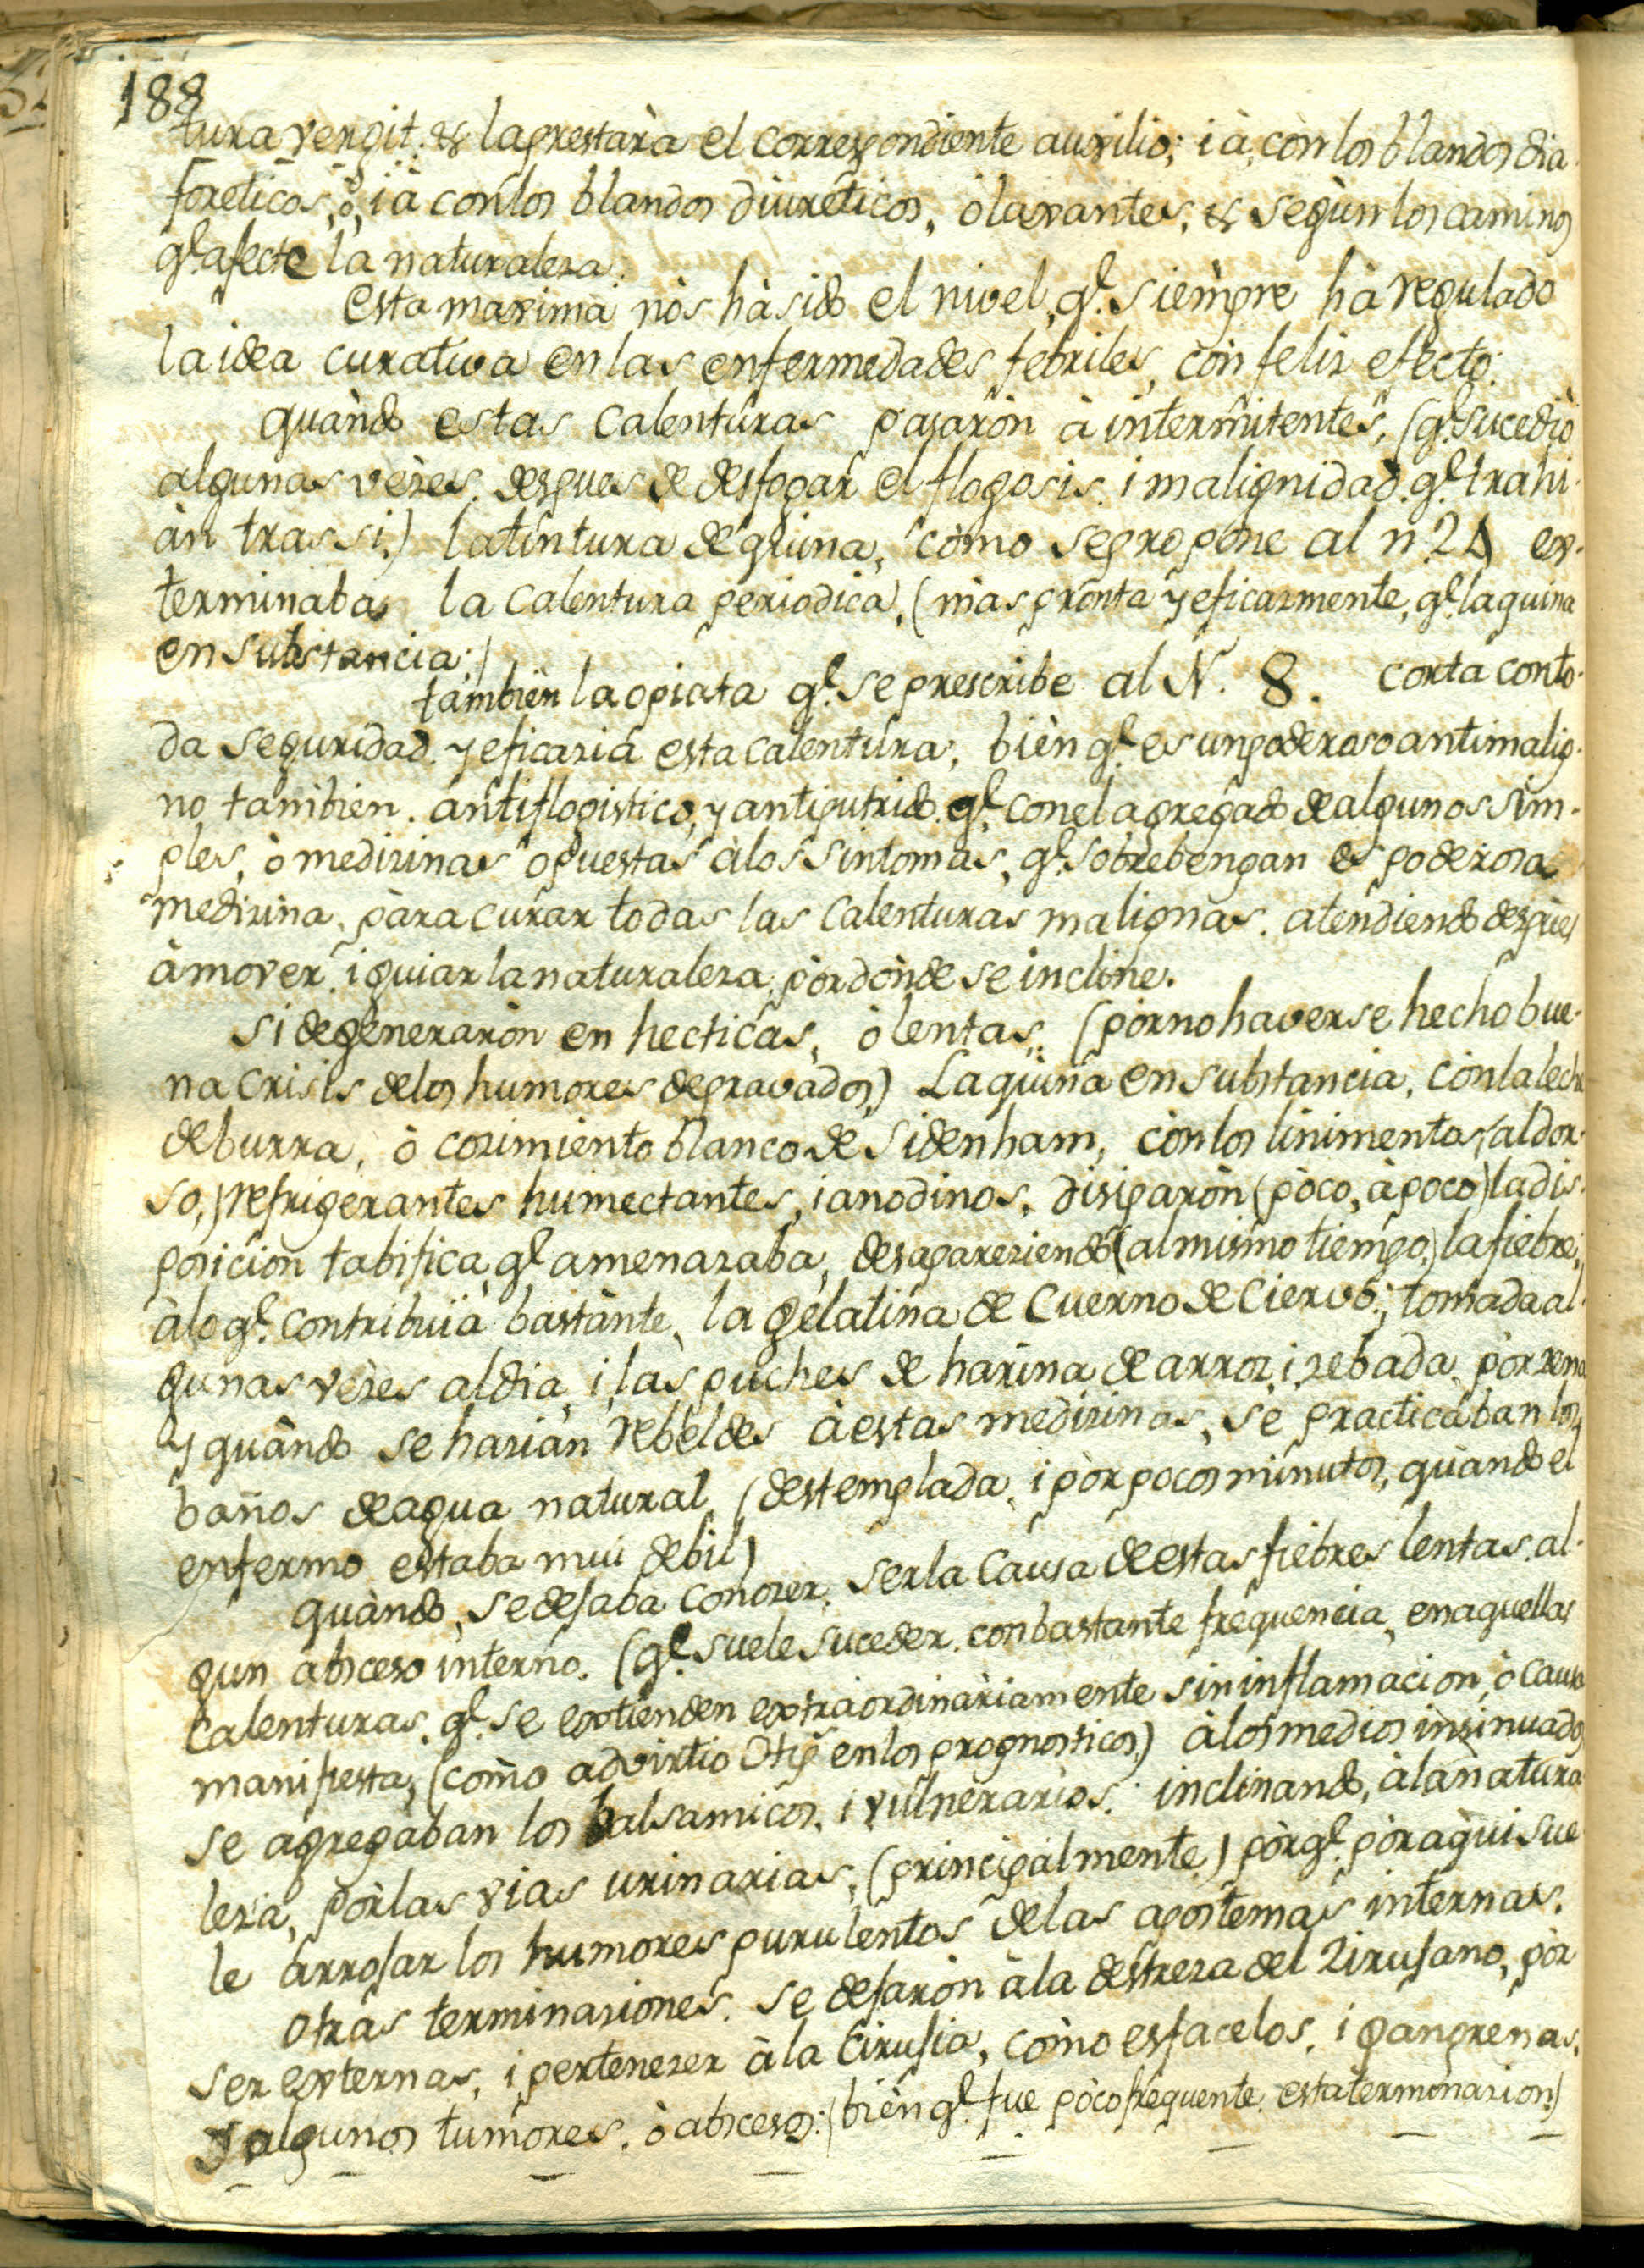 188
tura vergit. &. la prestarà el correspondiente auxilio; i à, còn los blandos dia-
foreticos, ò, ià con los blandos diureticos, ò laxantes, &. segùn los caminos
q.e afecte la naturaleza.
Esta maxima nòs hà sido el nivel, q.e siempre hà regulado
la idea curativa en las enfermedades febriles, còn feliz efecto.
Quàndo estas Calenturas pasaròn à intermitentes, (q.e sucediò
algunas vèzes, despues de desfogar el flogosis, i malignidad, q.e trahi-
àn tras si,) la tintura de quina, còmo se propone al n. 24 ex-
terminaba la Calentura periodica, (màs pronta y eficazmente, q.e la quina
en substancia.)
tambièn la opiata q.e se prescribe al N. 8. corta con to-
da seguridad y eficazia esta calentura, bièn q.e es un poderoso antimalig-
no tambien, antiflogistico, y antiputrido q.e con el agregado de algunos sim-
ples, ò medizinas opuestas à los sintomas, q.e sobrebengan es poderosa
medizina, pàra curar todas las Calenturas malignas. atendiendo despues
à mover, i guiar la naturaleza, pòr dònde se incline.
Si degeneraròn en hecticas, ò lentas, (pòr no haverse hecho bue-
na Crisis de los humores depravados,) La quina en substancia, còn la leche
de burra, ò cozimiento blanco de Sidenham, còn los linimentos, (al dor-
so,) refrigerantes humectantes, i anodinos, disiparòn (pòco, à poco) la dis-
posicion tabifica, q.e amenazaba, desapareziendo (al mismo tiempo,) la fiebre;
à lo q.e contribuïa bastànte, la gelatina de Cuerno de Ciervo; tomada al-
gunas vèzes al dia, i las puches de harina de arroz, i zebada, pòr zena
y quàndo se harian rebeldes à estas medizinas, se practicaban los
baños de agua natural, (destemplada, i pòr pocos minutos, quàndo el
enfermo estaba mui debil)
Quàndo, se dejaba conozer, ser la Causa de estas fiebres lentas, al-
gun absceso interno, (q.e suele suceder, con bastante frequencia, en aquellas
Calenturas, q.e se extienden extraordinàriamente sin inflamacion, ò causa
manifiesta, (còmo advirtio en los prognosticos,) à los medios insinuados
se agregaban los balsamicos, i vulnerarios; inclinando, à la natura-
leza, pòr las vias urinarias, (principalmente) pòrq.e pòr aqui sue-
le arrojar los humores purulentos de las apostemas internas.
Otras terminaziones, se dejaròn à la destreza del Zirujano, pòr
ser externas, i pertenezer à la Cirujia, còmo esfacelos, i gangrenas,
y algunos tumores, ò abscesos: (bièn q.e fue pòco frequente, esta terminazion.)